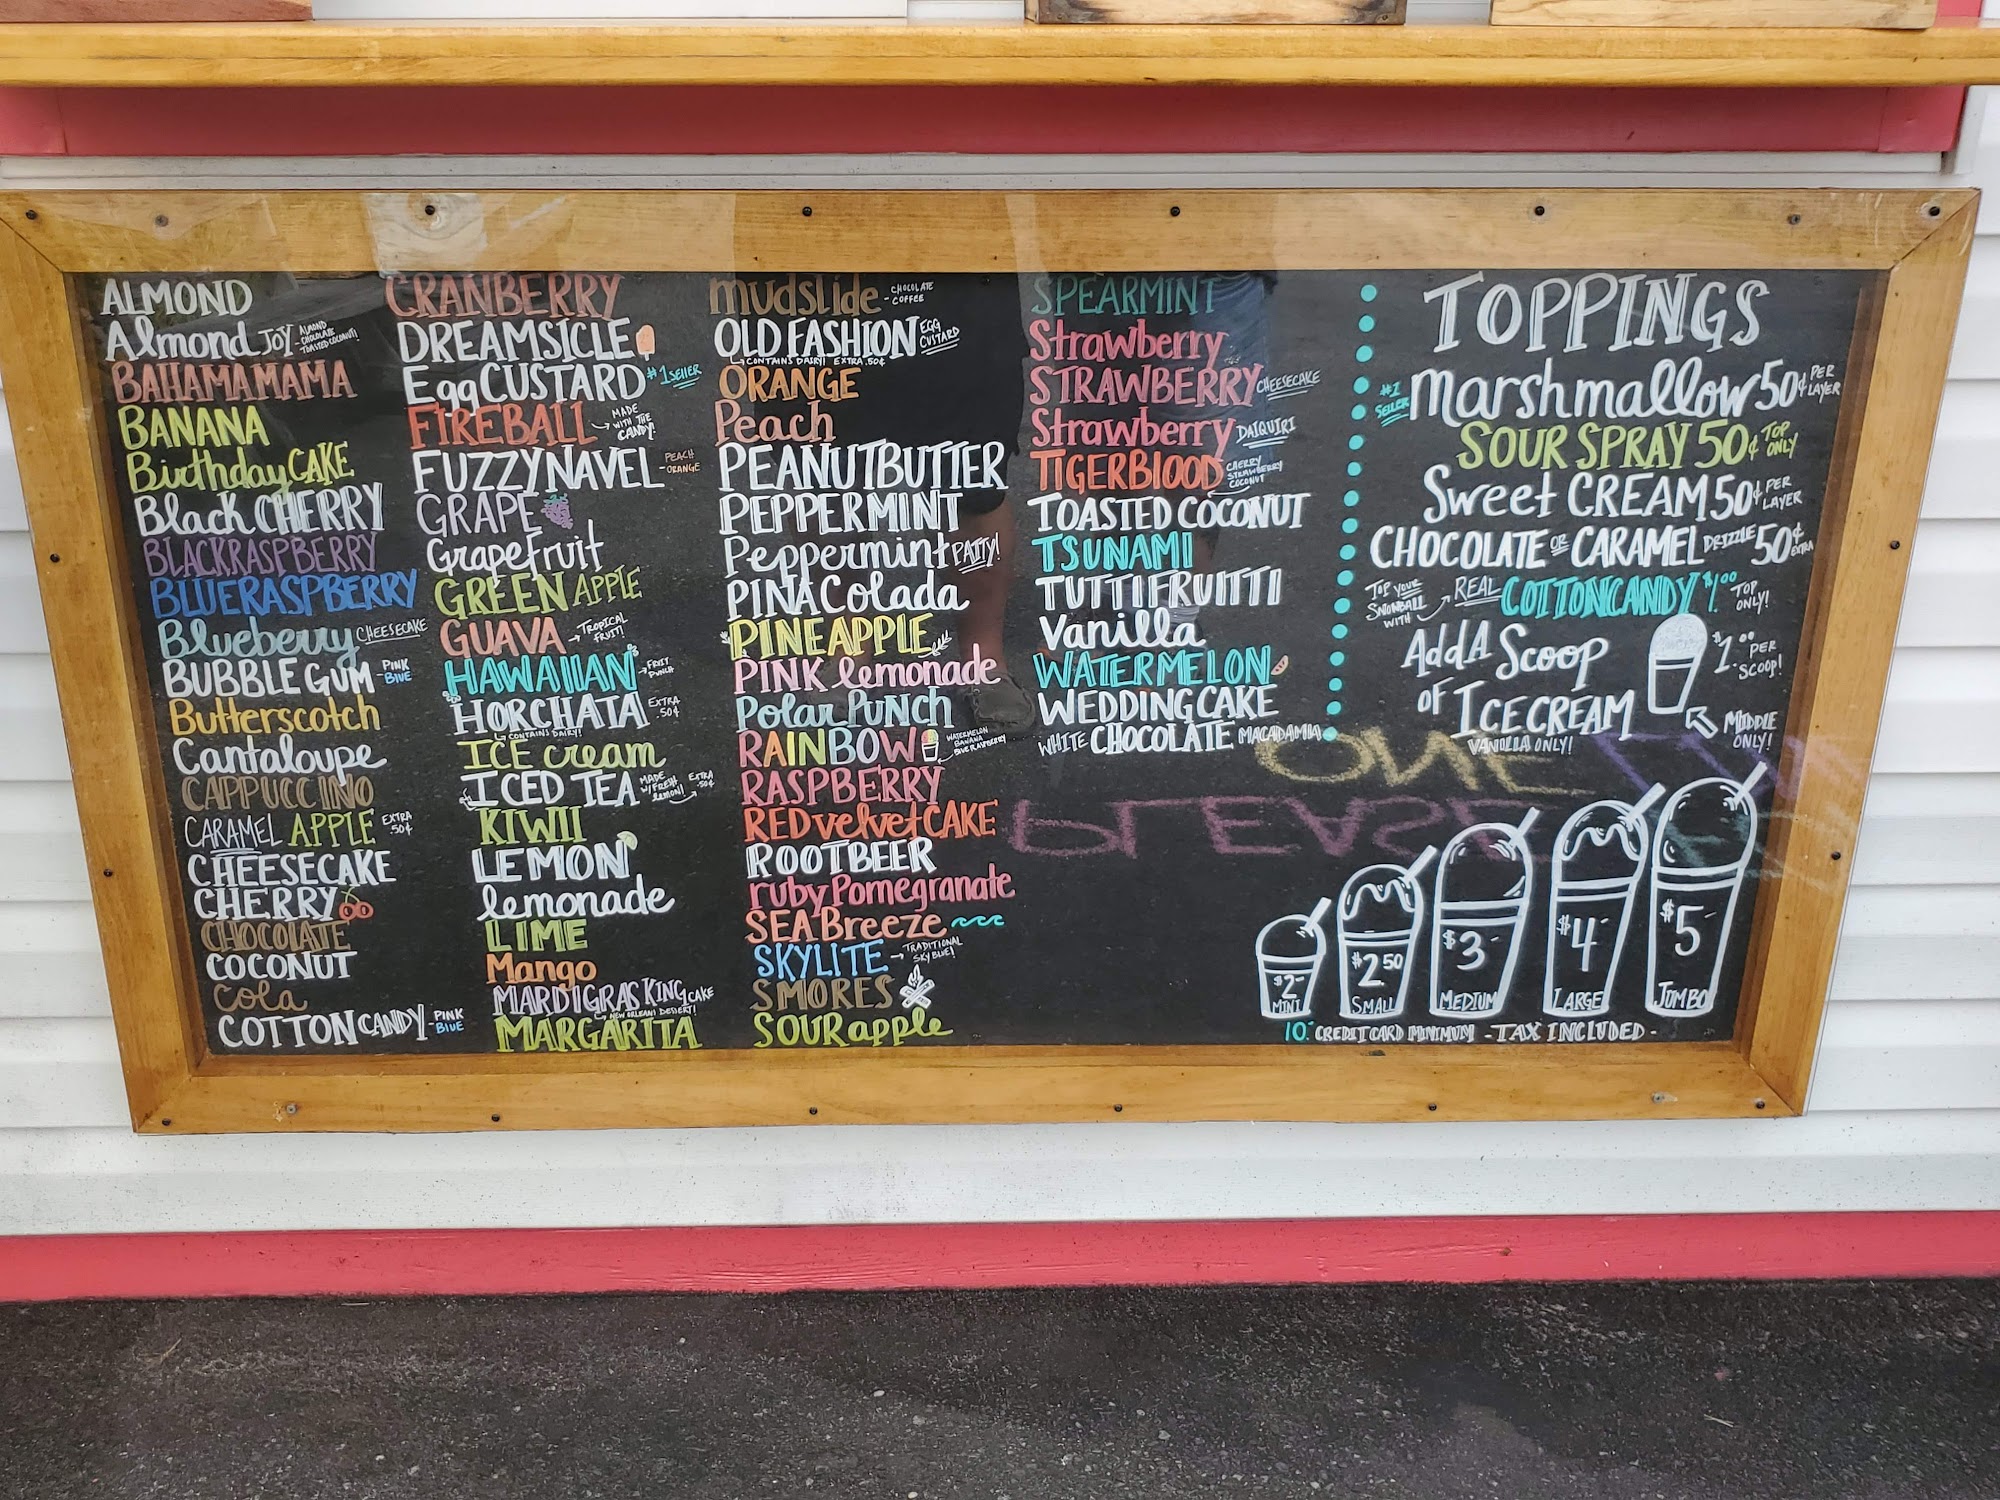 ALMOND
Almond JOY - ALMOND CHOCOLATE TOASTED COCONUT!
BAHAMA MAMA
BANANA
Birthday CAKE
Black CHERRY
BLACKRASPBERRY
BLUERASPBERRY
Blueberry CHEESECAKE
BUBBLE GUM - PINK BLUE
Butterscotch
Cantaloupe
CAPPUCCINO
CARAMEL APPLE EXTRA .50¢
CHEESECAKE
CHERRY
CHOCOLATE
COCONUT
Cola
COTTON CANDY - PINK BLUE
CRANBERRY
DREAMSICLE
Egg CUSTARD #1 SELLER
FIREBALL MADE WITH THE CANDY!
FUZZY NAVEL - PEACH ORANGE
GRAPE
Grapefruit
GREEN APPLE
GUAVA → TROPICAL FRUIT!
HAWAIIAN → FRUIT PUNCH
HORCHATA EXTRA .50¢
CONTAINS DAIRY!
ICE cream
ICED TEA MADE W/ FRESH lemon! EXTRA .50¢
KIWII
LEMON
lemonade
LIME
Mango
MARDI GRAS KING CAKE
NEW ORLEANS DESSERT!
MARGARITA
mudslide - CHOCOLATE COFFEE
OLD FASHION EGG CUSTARD
CONTAINS DAIRY! EXTRA .50¢
ORANGE
Peach
PEANUTBUTTER
PEPPERMINT
Peppermint PATTY!
PINA Colada
PINEAPPLE
PINK lemonade
Polar PUNCH
RAINBOW WATERMELON BANANA BLUE RASPBERRY
RASPBERRY
RED velvet CAKE
ROOTBEER
ruby Pomegranate
SEA Breeze
SKYLITE → TRADITIONAL SKY BLUE!
SMORES
SOUR apple
SPEARMINT
Strawberry
STRAWBERRY CHEESECAKE
Strawberry DAIQUIRI
TIGERBLOOD CHERRY STRAWBERRY COCONUT
TOASTED COCONUT
TSUNAMI
TUTTIFRUITTI
Vanilla
WATERMELON
WEDDING CAKE
WHITE CHOCOLATE MACADAMIA
TOPPINGS
#1 SELLER Marshmallow 50¢ PER LAYER
SOUR SPRAY 50¢ TOP ONLY
Sweet CREAM 50¢ PER LAYER
CHOCOLATE OR CARAMEL DRIZZLE 50¢ EXTRA
TOP YOUR SNOWBALL WITH → REAL COTTON CANDY $1.00 TOP ONLY!
Add A Scoop
of ICE CREAM $1.00 PER SCOOP!
VANILLA ONLY! MIDDLE ONLY!
ONE
PLEASE
$2- MINI
$2.50 SMALL
$3- MEDIUM
$4- LARGE
$5- JUMBO
10.- CREDIT CARD MINIMUM - TAX INCLUDED -